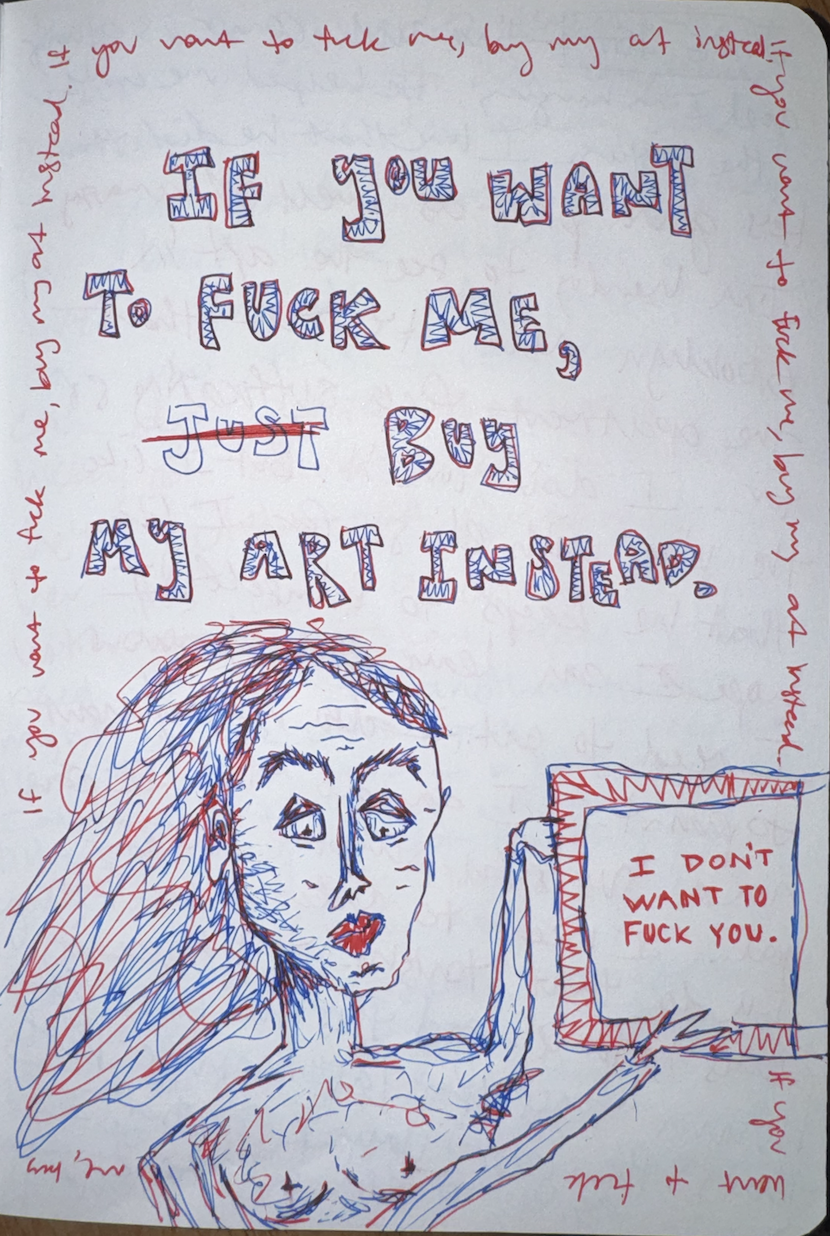 If you want to fuck me, buy my art instead.
If you want to fuck me, buy my art instead.
If you want to fuck me, buy my art instead.
IF YOU WANT
TO FUCK ME,
JUST BUY
MY ART INSTEAD.
I DON'T
WANT TO
FUCK YOU.
If you
want to fuck
me, buy